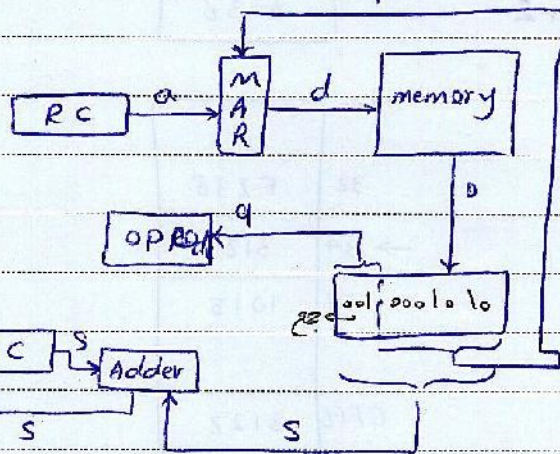 RC
a
M
A
R
d
memory
D
q
001 000 10 10
C
S
Adder
S
S